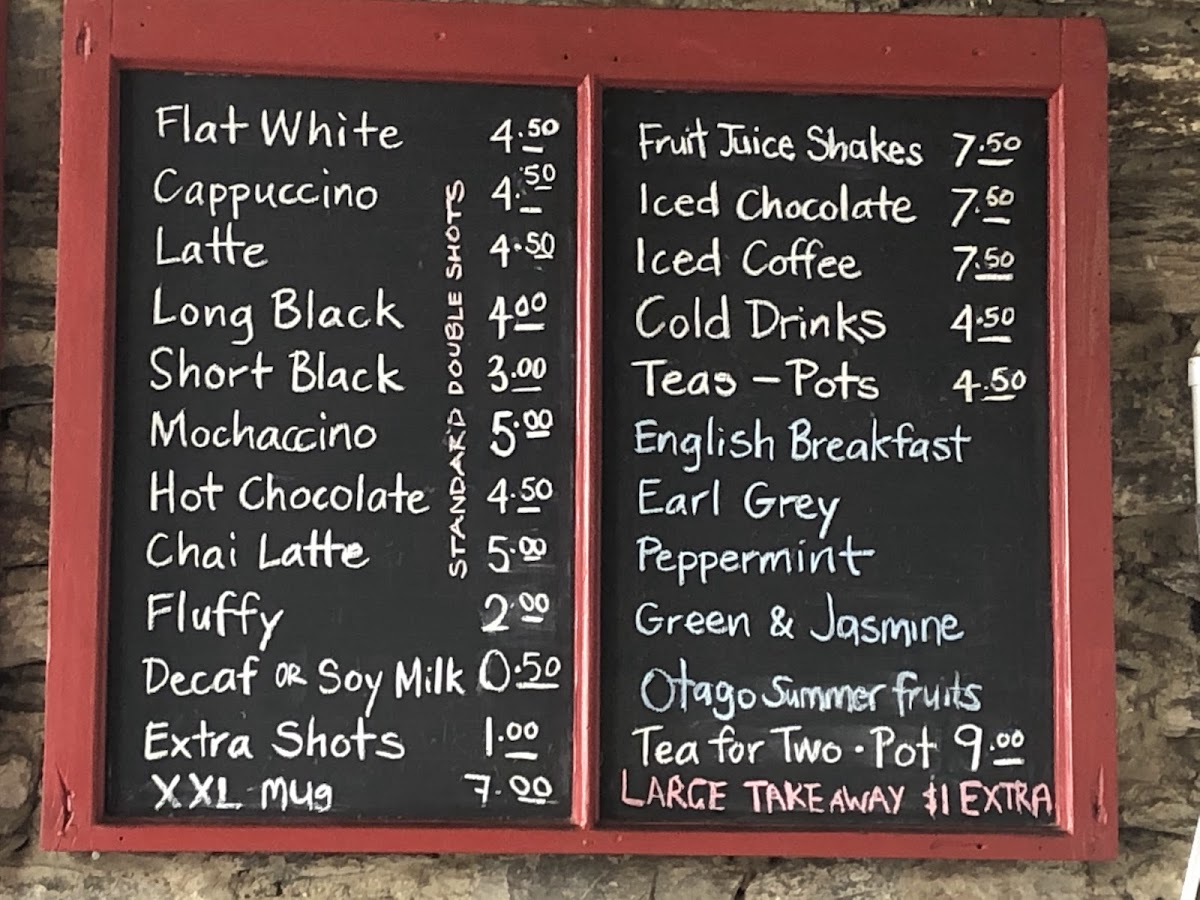 Flat White 4.50
Cappuccino 4.50
Latte 4.50
Long Black 4.00
Short Black 3.00
Mochaccino 5.00
Hot Chocolate 4.50
Chai Latte 5.00
Fluffy 2.00
Decaf OR Soy Milk 0.50
Extra Shots 1.00
XXL Mug 7.00
STANDARD DOUBLE SHOTS
Fruit Juice Shakes 7.50
Iced Chocolate 7.50
Iced Coffee 7.50
Cold Drinks 4.50
Teas - Pots 4.50
English Breakfast
Earl Grey
Peppermint
Green & Jasmine
Otago Summer fruits
Tea for Two · Pot 9.00
LARGE TAKE AWAY $1 EXTRA